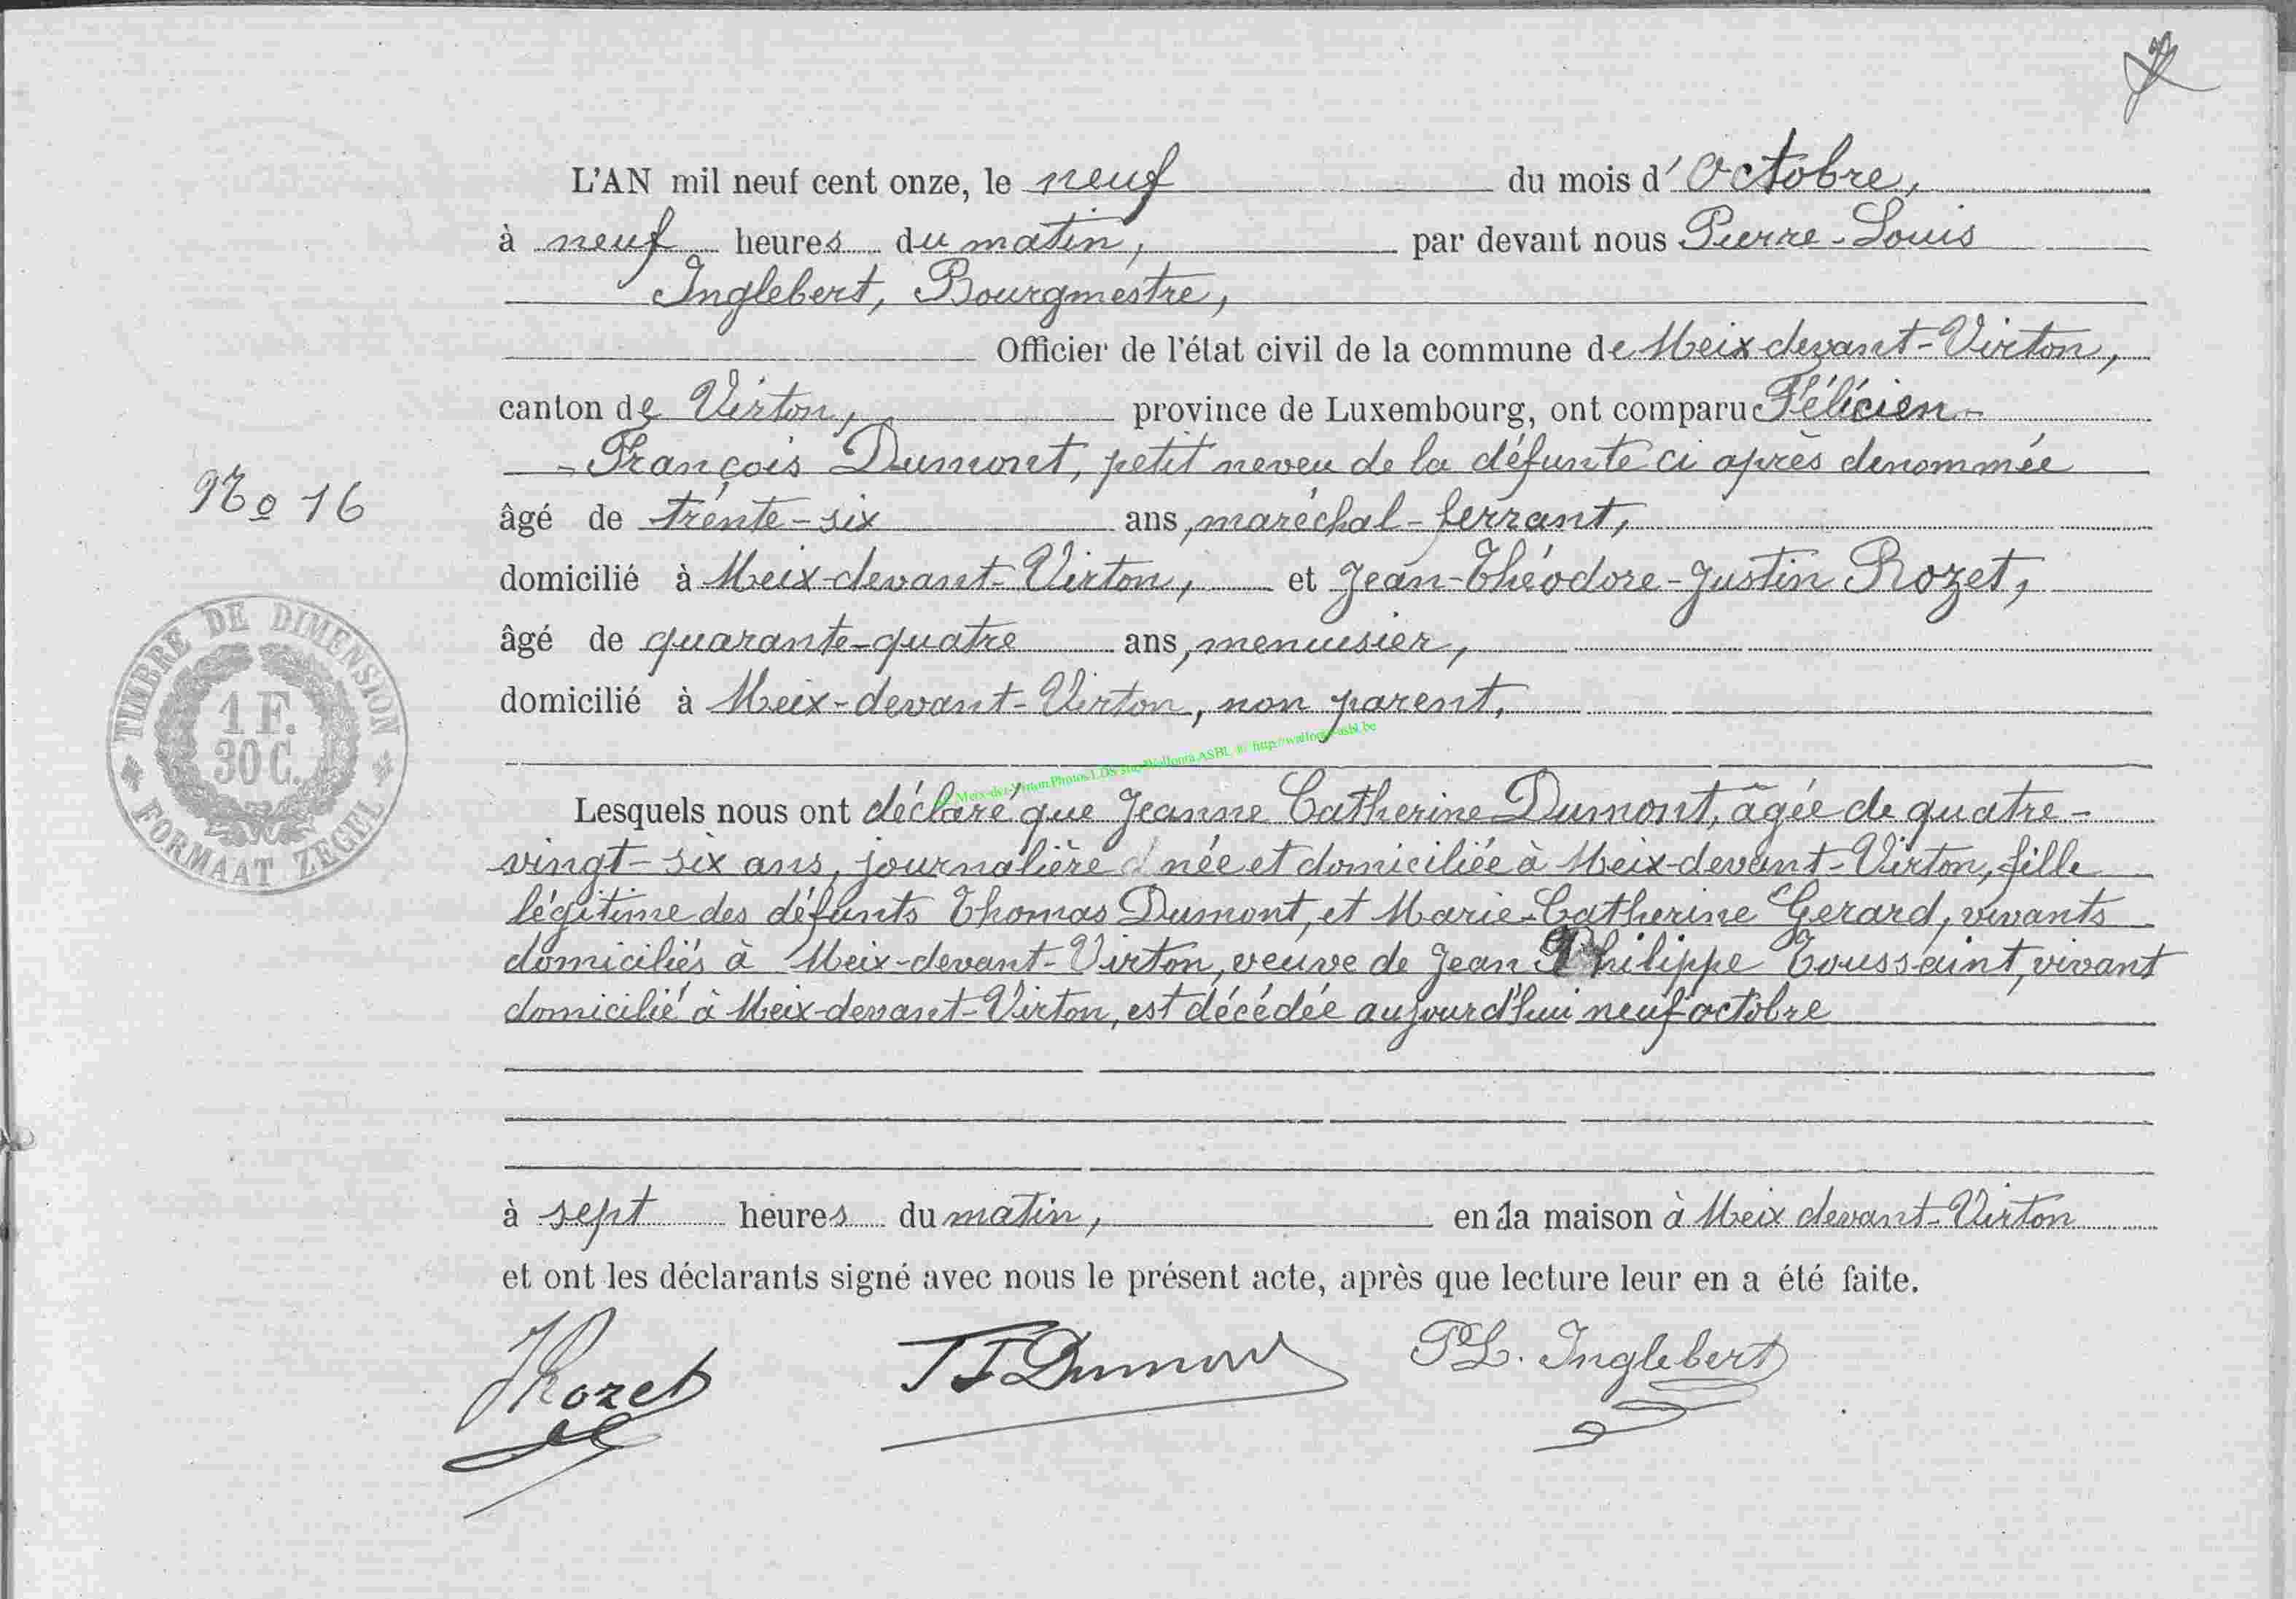 L'AN mil neuf cent onze, le neuf du mois d'Octobre,
à neuf heures du matin, par devant nous Pierre-Louis
Inglebert, Bourgmestre,
Officier de l'état civil de la commune de Meix devant-Virton,
canton de Virton, province de Luxembourg, ont comparu Félicien-
-François Dumont, petit neveu de la défunte ci après dénommée
No 16
âgé de trente-six ans, maréchal-ferrant,
domicilié à Meix-devant-Virton, et Jean-Théodore-Justin Rozet,
âgé de quarante-quatre ans, menuisier,
domicilié à Meix-devant-Virton, non parent,
TIMBRE DE DIMENSION
1 F.
30 C.
FORMAAT ZEGEL
Lesquels nous ont déclaré que Jeanne Catherine Dumont, âgée de quatre-
vingt-six ans, journalière née et domiciliée à Meix-devant-Virton, fille
légitime des défunts Thomas Dumont, et Marie-Catherine Gerard, vivants
domiciliés à Meix-devant-Virton, veuve de Jean Philippe Toussaint, vivant
domicilié à Meix-devant-Virton, est décédée aujourd'hui neuf octobre
à sept heures du matin, en la maison à Meix devant-Virton
et ont les déclarants signé avec nous le présent acte, après que lecture leur en a été faite.
JRozet FFDumont PL. Inglebert